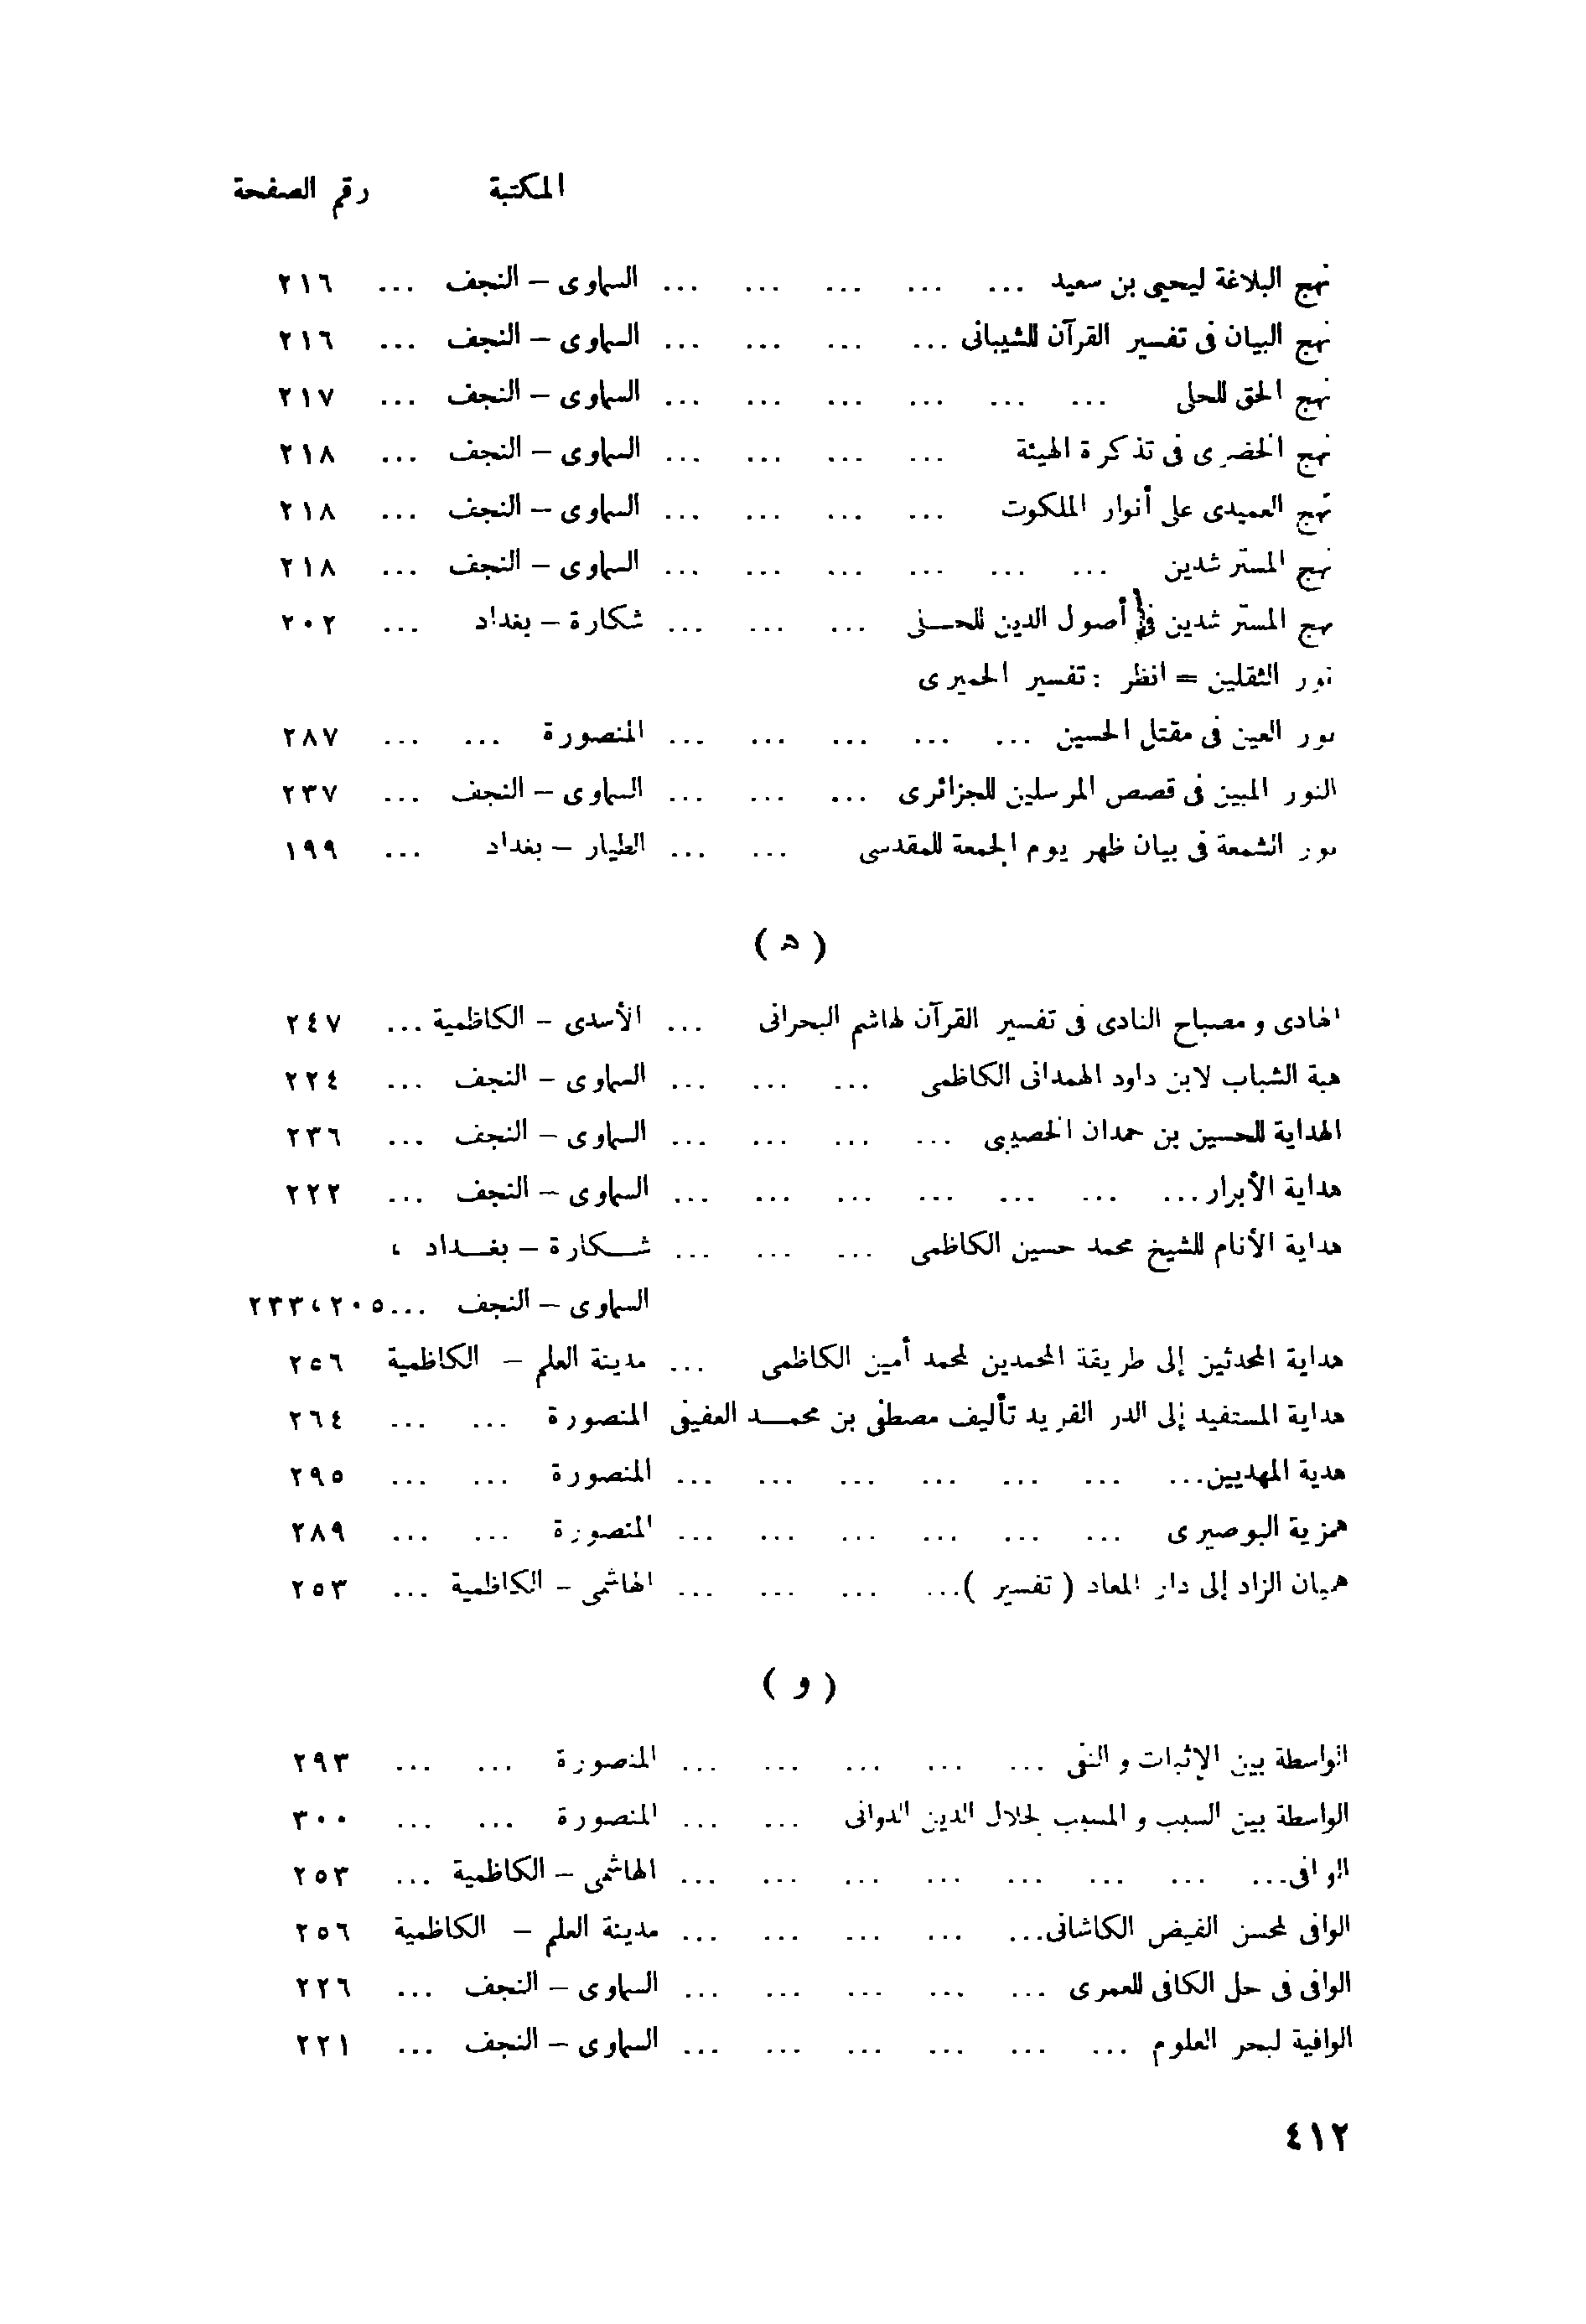 المكتبة رقم الصفحة
نهج البلاغة ليحيى بن سعيد ... ... ... ... ... السماوى – النجف ... ٢١٦
نهج البيان فى تفسير القرآن للشيبانى ... ... ... ... السماوى – النجف ... ٢١٦
نهج الحق للحلى ... ... ... ... ... ... السماوى – النجف ... ٢١٧
نهج الخضرى فى تذكرة الهيئة ... ... ... ... السماوى – النجف ... ٢١٨
نهج العميدى على أنوار الملكوت ... ... ... ... السماوى – النجف ... ٢١٨
نهج المسترشدين ... ... ... ... ... ... السماوى – النجف ... ٢١٨
نهج المسترشدين فى أصول الدين للحـلى ... ... ... شكارة – بغداد ... ٢٠٢
نور الثقلين = انظر : تفسير الحميرى
نور العين فى مقتل الحسين ... ... ... ... ... المنصورة ... ... ٢٨٧
النور المبين فى قصص المرسلين للجزائرى ... ... ... السماوى – النجف ... ٢٣٧
نور الشمعة فى بيان ظهر يوم الجمعة للمقدسى ... ... الطيار – بغداد ... ١٩٩
( ه )
الهادى و مصباح النادى فى تفسير القرآن لهاشم البحرانى ... الأسدى – الكاظمية ... ٢٤٧
هبة الشباب لابن داود الهمدانى الكاظمى ... ... ... السماوى – النجف ... ٢٢٤
الهداية للحسين بن حمدان الخصيبى ... ... ... ... السماوى – النجف ... ٢٣٦
هداية الأبرار ... ... ... ... ... ... ... السماوى – النجف ... ٢٢٢
هداية الأنام للشيخ محمد حسين الكاظمى ... ... ... شـكارة – بغـداد ،
السماوى – النجف ...٢٠٥،٢٣٣
هداية المحدثين إلى طريقة المحمدين لمحمد أمين الكاظمى ... مدينة العلم – الكاظمية ٢٥٦
هداية المستفيد إلى الدر الفريد تأليف مصطفى بن محمـد العفيفى المنصورة ... ... ٢٦٤
هدية المهديين... ... ... ... ... ... ... المنصورة ... ... ٢٩٥
همزية البوصيرى ... ... ... ... ... ... المنصورة ... ... ٢٨٩
هميان الزاد إلى دار المعاد ( تفسير )... ... ... ... الهاشمى – الكاظمية ... ٢٥٣
( و )
الواسطة بين الإثبات و النفى ... ... ... ... ... المنصورة ... ... ٢٩٣
الواسطة بين السبب و المسبب لجلال الدين الدوانى ... ... المنصورة ... ... ٣٠٠
الوافى... ... ... ... ... ... ... ... الهاشمى – الكاظمية ... ٢٥٣
الوافى لمحسن الفيض الكاشانى... ... ... ... ... مدينة العلم – الكاظمية ٢٥٦
الوافى فى حل الكافى للعمرى ... ... ... ... ... السماوى – النجف ... ٢٢٦
الوافية لبحر العلوم ... ... ... ... ... ... السماوى – النجف ... ٢٢١
٤١٢